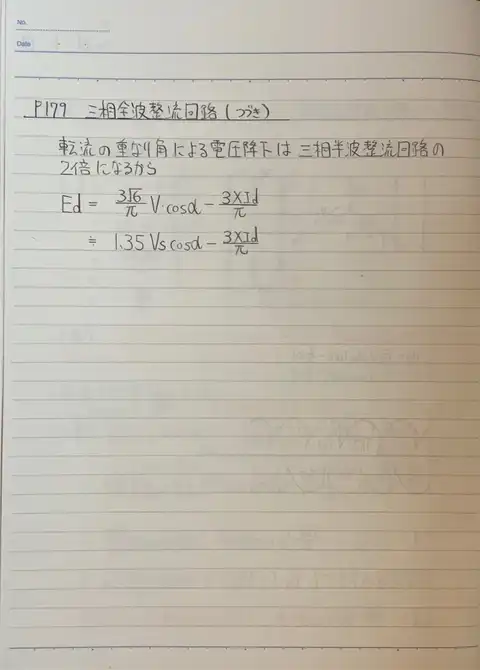 No.
Date
P179 三相全波整流回路(つづき)
転流の重なり角による電圧降下は三相半波整流回路の
2倍になるから
Ed = 3√6/π V・cosα - 3XId/π
≒ 1.35 Vs cosα - 3XId/π